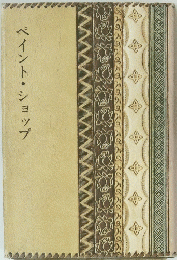 ペイント・ショップ